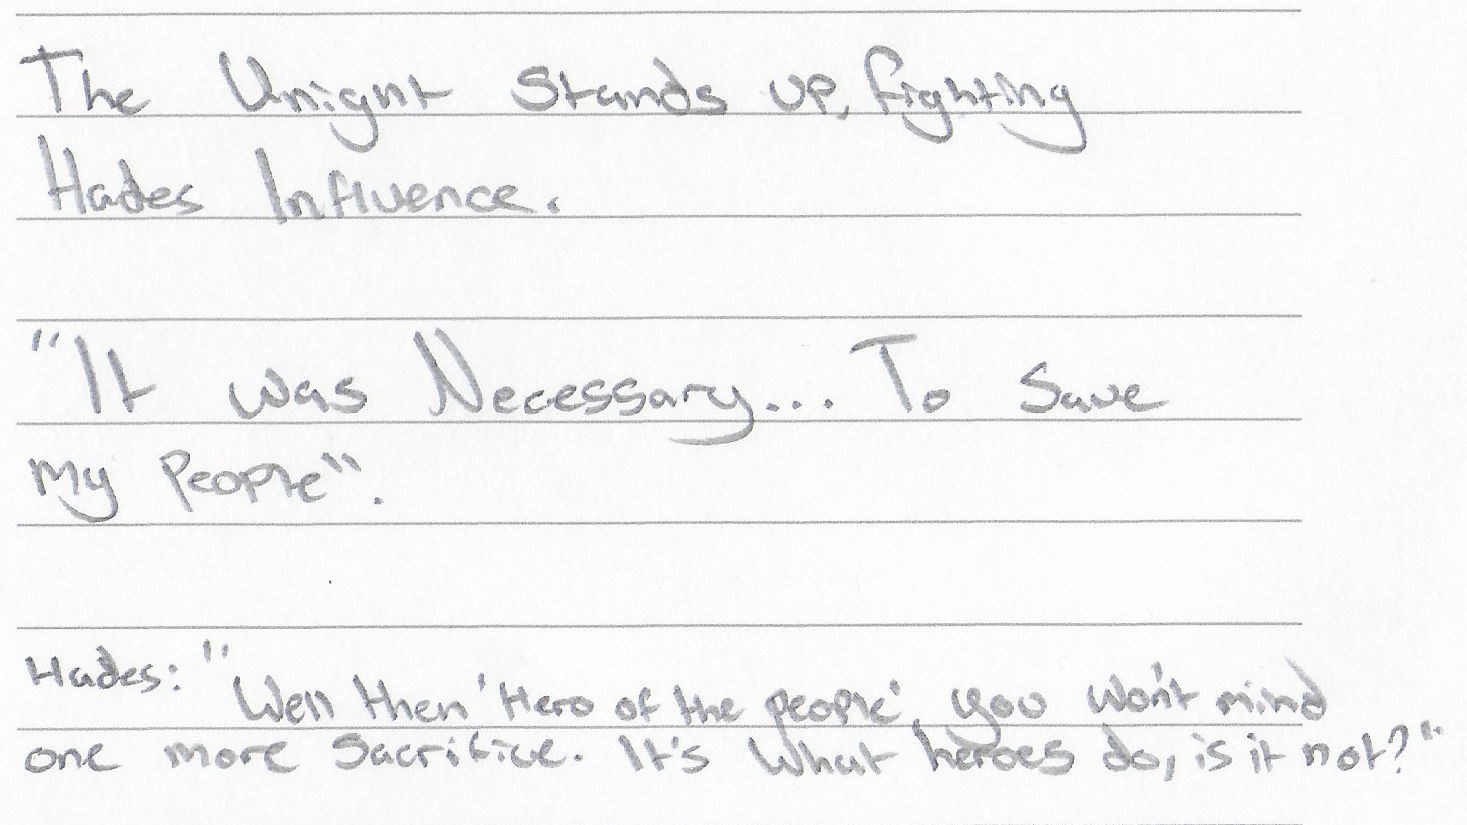 The Knight Stands up, fighting
Hades Influence.
"It was Necessary... To Save
my people".
Hades: "Well then 'Hero of the people', you won't mind
one more Sacrifice. It's what heroes do, is it not?"